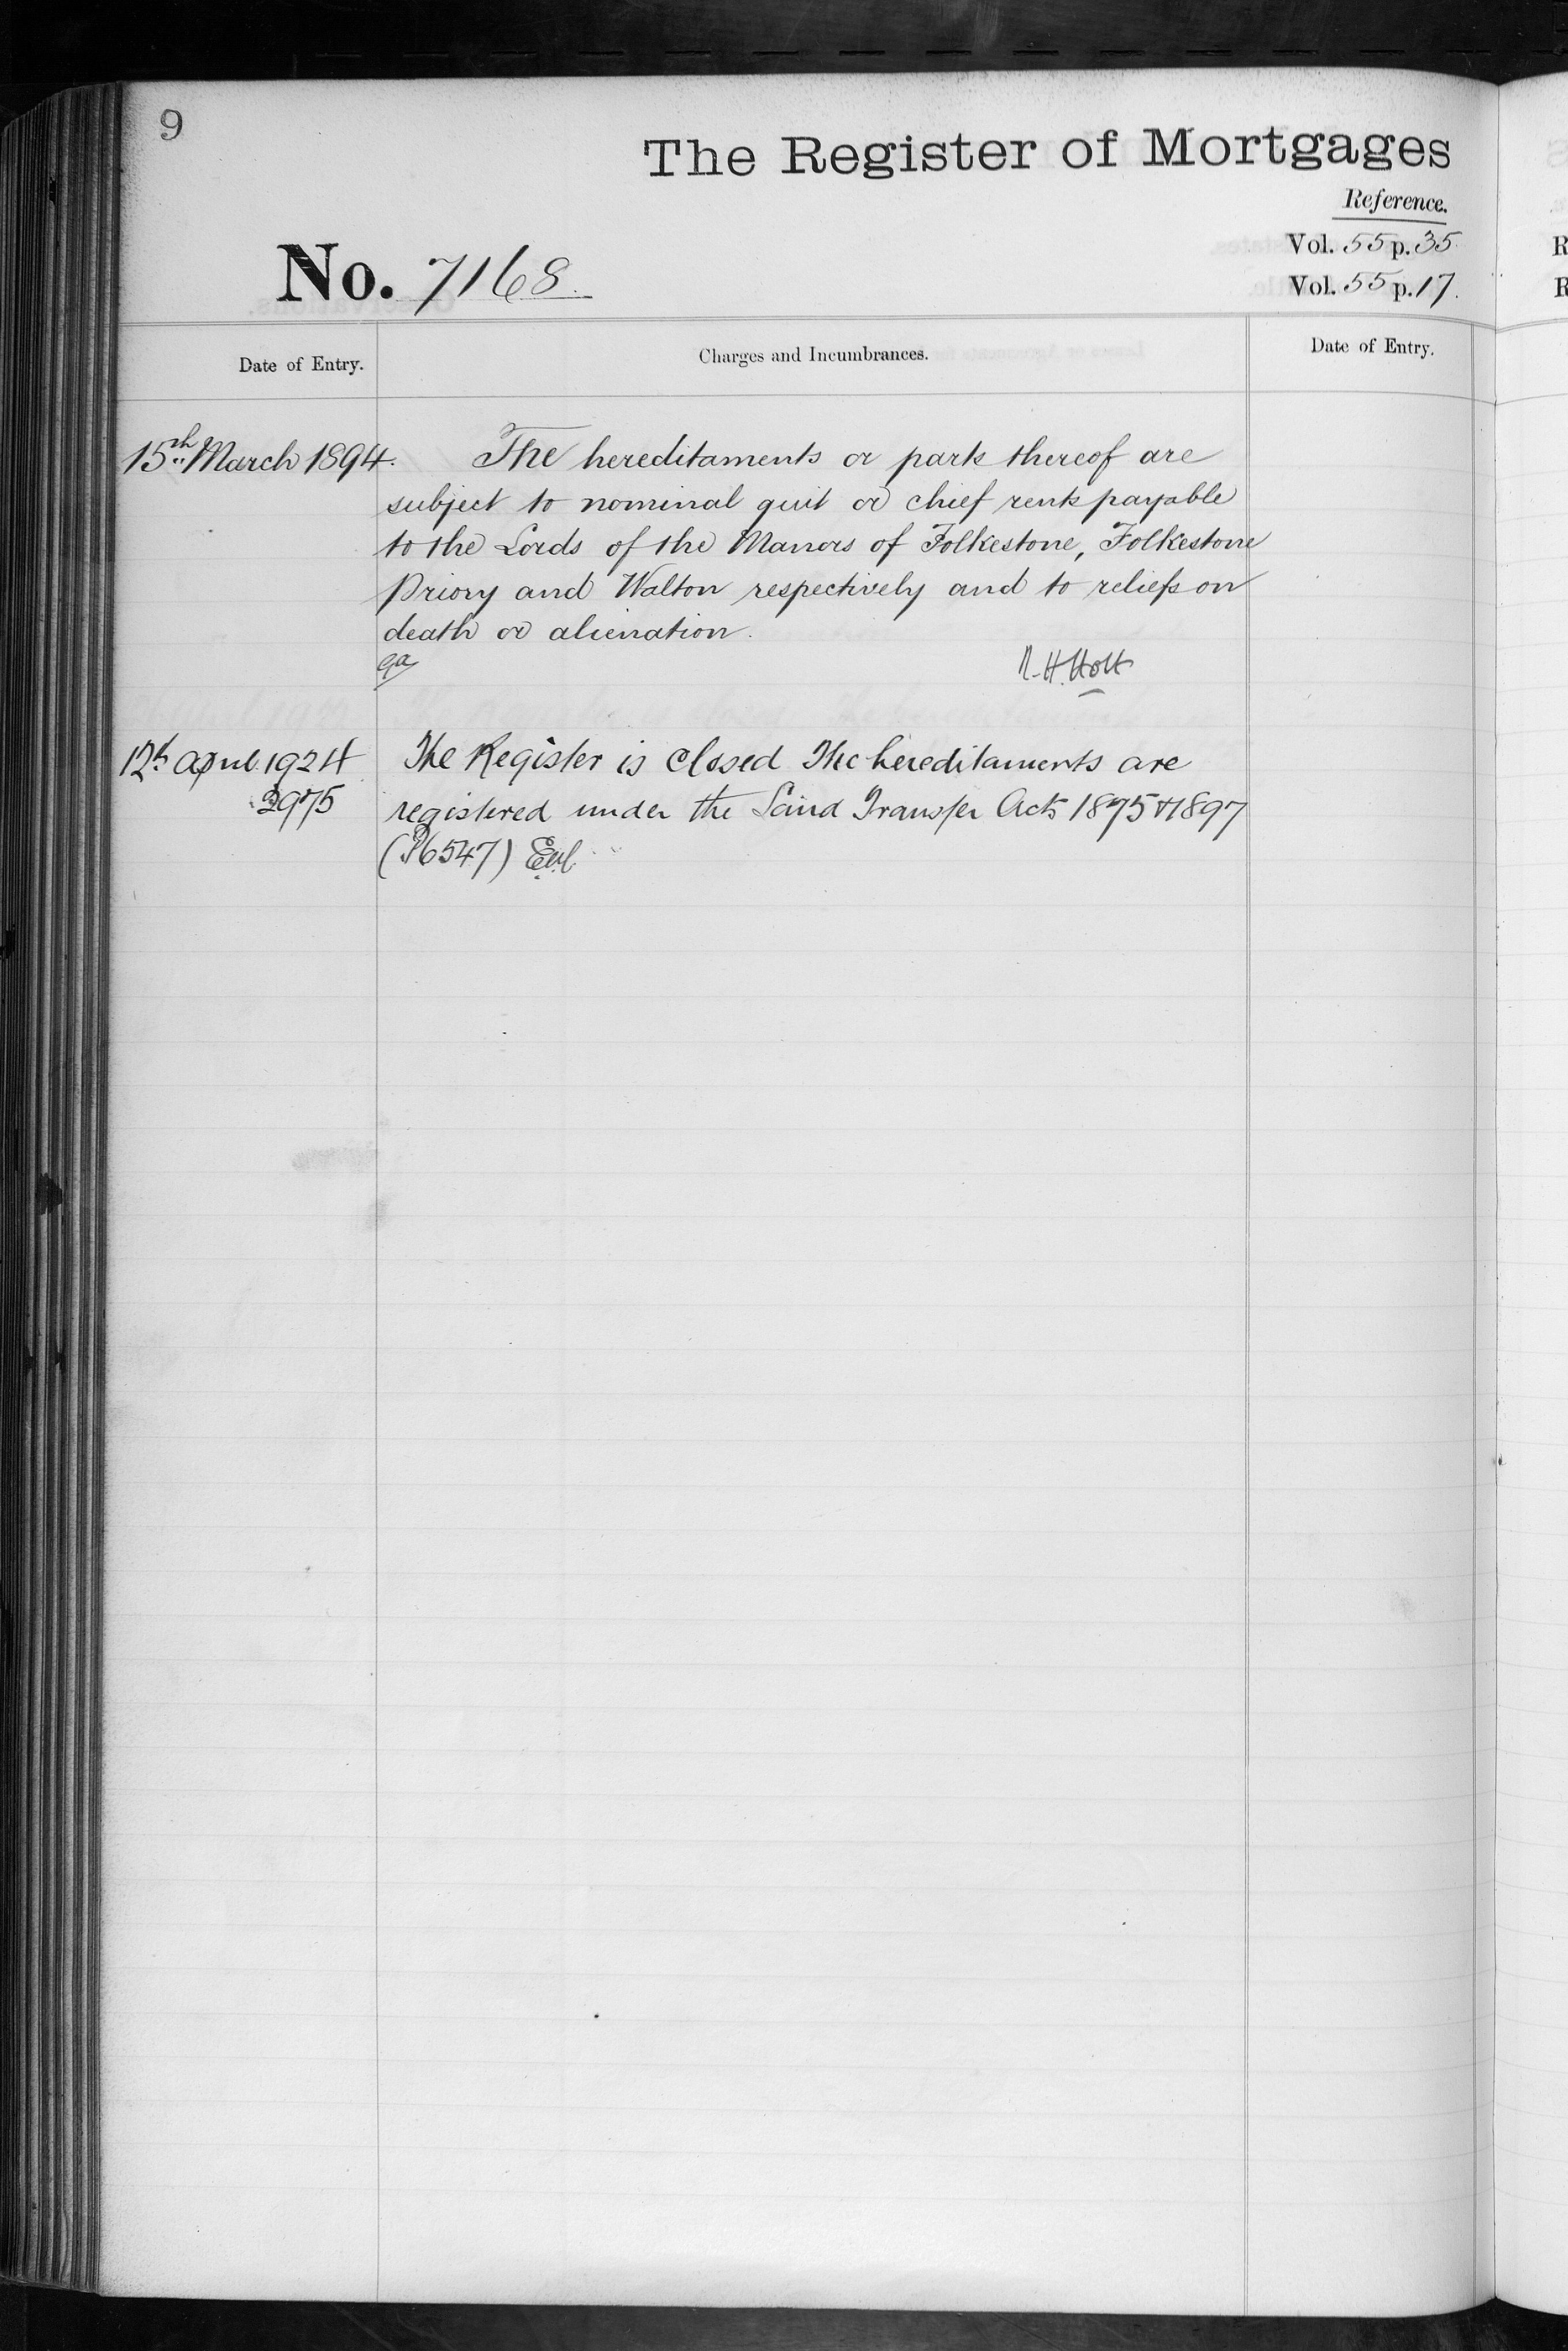 9
The Register of Mortgages
Reference.
Vol. 55 p. 35
Vol. 55 p. 17.
No. 7168.
Date of Entry.
Charges and Incumbrances.
Date of Entry.
15th March 1894.
The hereditaments or parts thereof are
subject to nominal quit or chief rents payable
to the Lords of the Manors of Folkestone, Folkestone
Priory and Walton respectively and to reliefs on
death or alienation.
H. Holt
12th April 1924
2975
The Register is closed The hereditaments are
registered under the Land Transfer Acts 1875 & 1897
(P6547)
R
R